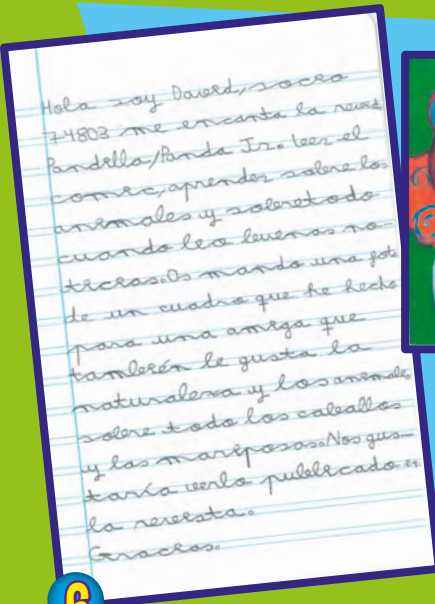 Hola soy David, socio
74803 me encanta la revist
Pandilla/Panda Jr. leer el
comic, aprender sobre los
animales y sobretodo
cuando leo buenas no-
ticias. Os mando una foto
de un cuadro que he hecho
para una amiga que
también le gusta la
naturaleza y los animales
sobre todo los caballos
y las mariposas. Nos gus-
taría verlo publicado en
la revista.
Gracias.
6